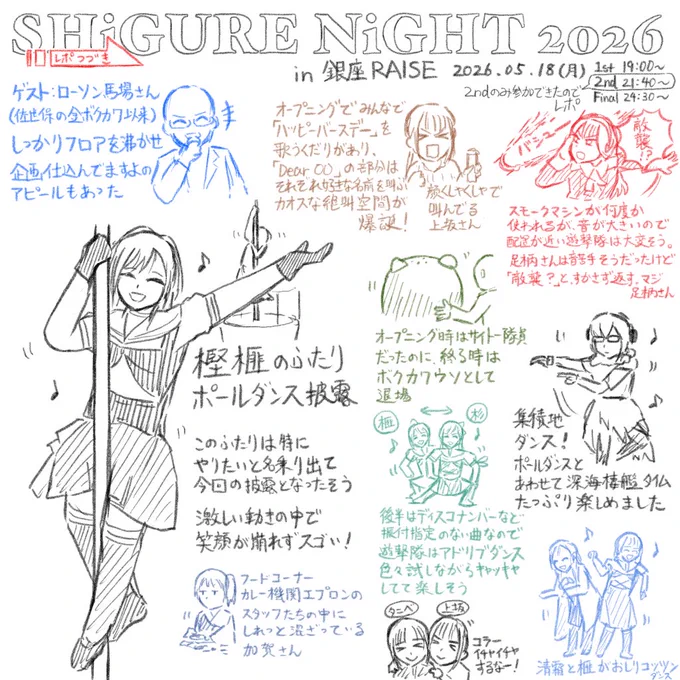 SHiGURE NiGHT 2026
レポつづき
in 銀座RAISE 2026.05.18(月)
1st 19:00〜
2nd 21:40〜
Final 24:30〜
2ndのみ参加できたので
レポ
ゲスト:ローソン馬場さん
(佐世保の全ボクカワ以来)
しっかりフロアを沸かせ
企画仕込んでますよの
アピールもあった
オープニングでみんなで
「ハッピーバースデー」を
歌うくだりがあり、
「Dear ○○」の部分は
それぞれ好きな名前を叫ぶ
カオスな絶叫空間が
爆誕!
顔くしゃくしゃで
叫んでる
上坂さん
バシュー
敵襲!?
スモークマシンが何度か
使われるが、音が大きいので
配置が近い遊撃隊は大変そう。
足柄さんは苦手そうだったけど
「敵襲?」と、すかさず返す。マジ
足柄さん
樫榧のふたり
ポールダンス披露
このふたりは特に
やりたいと名乗り出て
今回の披露となったそう
激しい動きの中で
笑顔が崩れずスゴい!
オープニング時はサイトー隊員
だったのに、終る時は
ボクカワウソとして
退場
集積地
ダンス!
ポールダンスと
あわせて深海棲艦タイム
たっぷり楽しめました
榧
杉
後半はディスコナンバーなど
振付指定のない曲なので
遊撃隊はアドリブダンス
色々試しながらキャッキャ
してて楽しそう
フードコーナー
カレー機関エプロンの
スタッフたちの中に
しれっと混ざっている
加賀さん
タニベ
上坂
コラー
イチャイチャ
するなー!
清霜と榧がおしりコッツン
ダンス